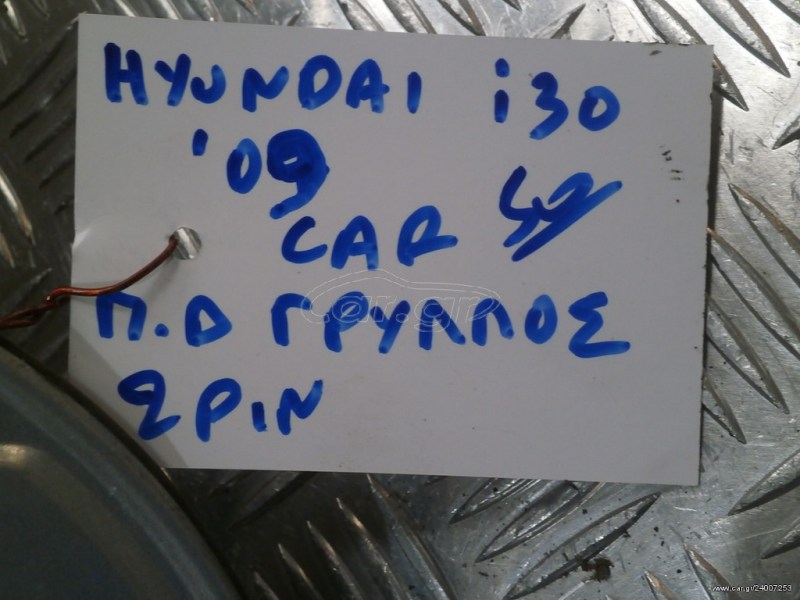 HYUNDAI i30
'09
CAR
Π.Δ ΓΡΥΛΛΟΣ
2PIN
www.car.gr/24007253